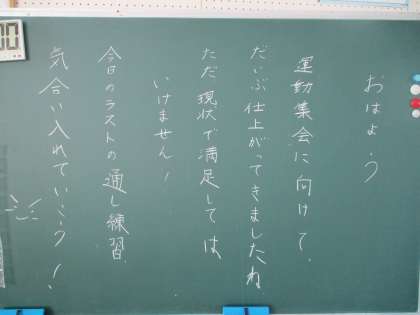 おはよう
運動集会に向けて、
だいぶ仕上がってきましたね
ただ現状で満足しては
いけません！
今日のラストの通し練習
気合い入れていこう！